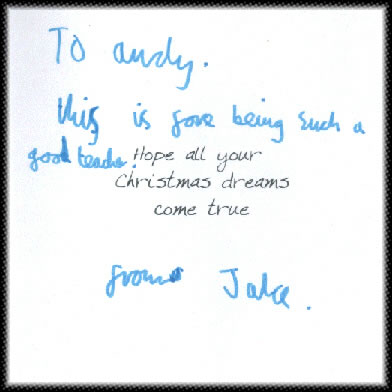 To andy.
this is fore being such a
good teacher. Hope all your
Christmas dreams
come true
from Jake.